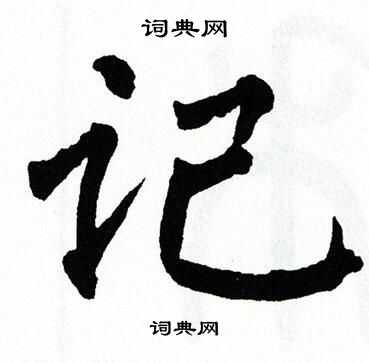 词典网
记
词典网